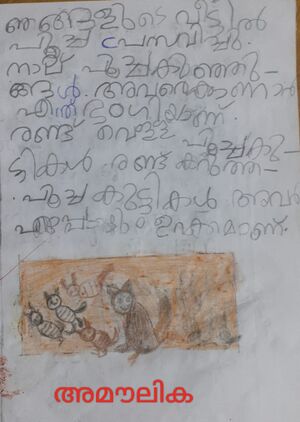 ഞങ്ങളുടെ വീട്ടിൽ
പൂച്ച പ്രസവിച്ചു.
നാല് പൂച്ചകുഞ്ഞു-
ങ്ങൾ. അവയെകാണാൻ
എന്ത് ഭംഗിയാണ്.
രണ്ട് വെള്ള പൂച്ചകു-
ട്ടികൾ രണ്ട് കറുത്ത
പൂച്ച കുട്ടികൾ അവർ
എപ്പോഴും ഉറക്കമാണ്.
അമൗലിക